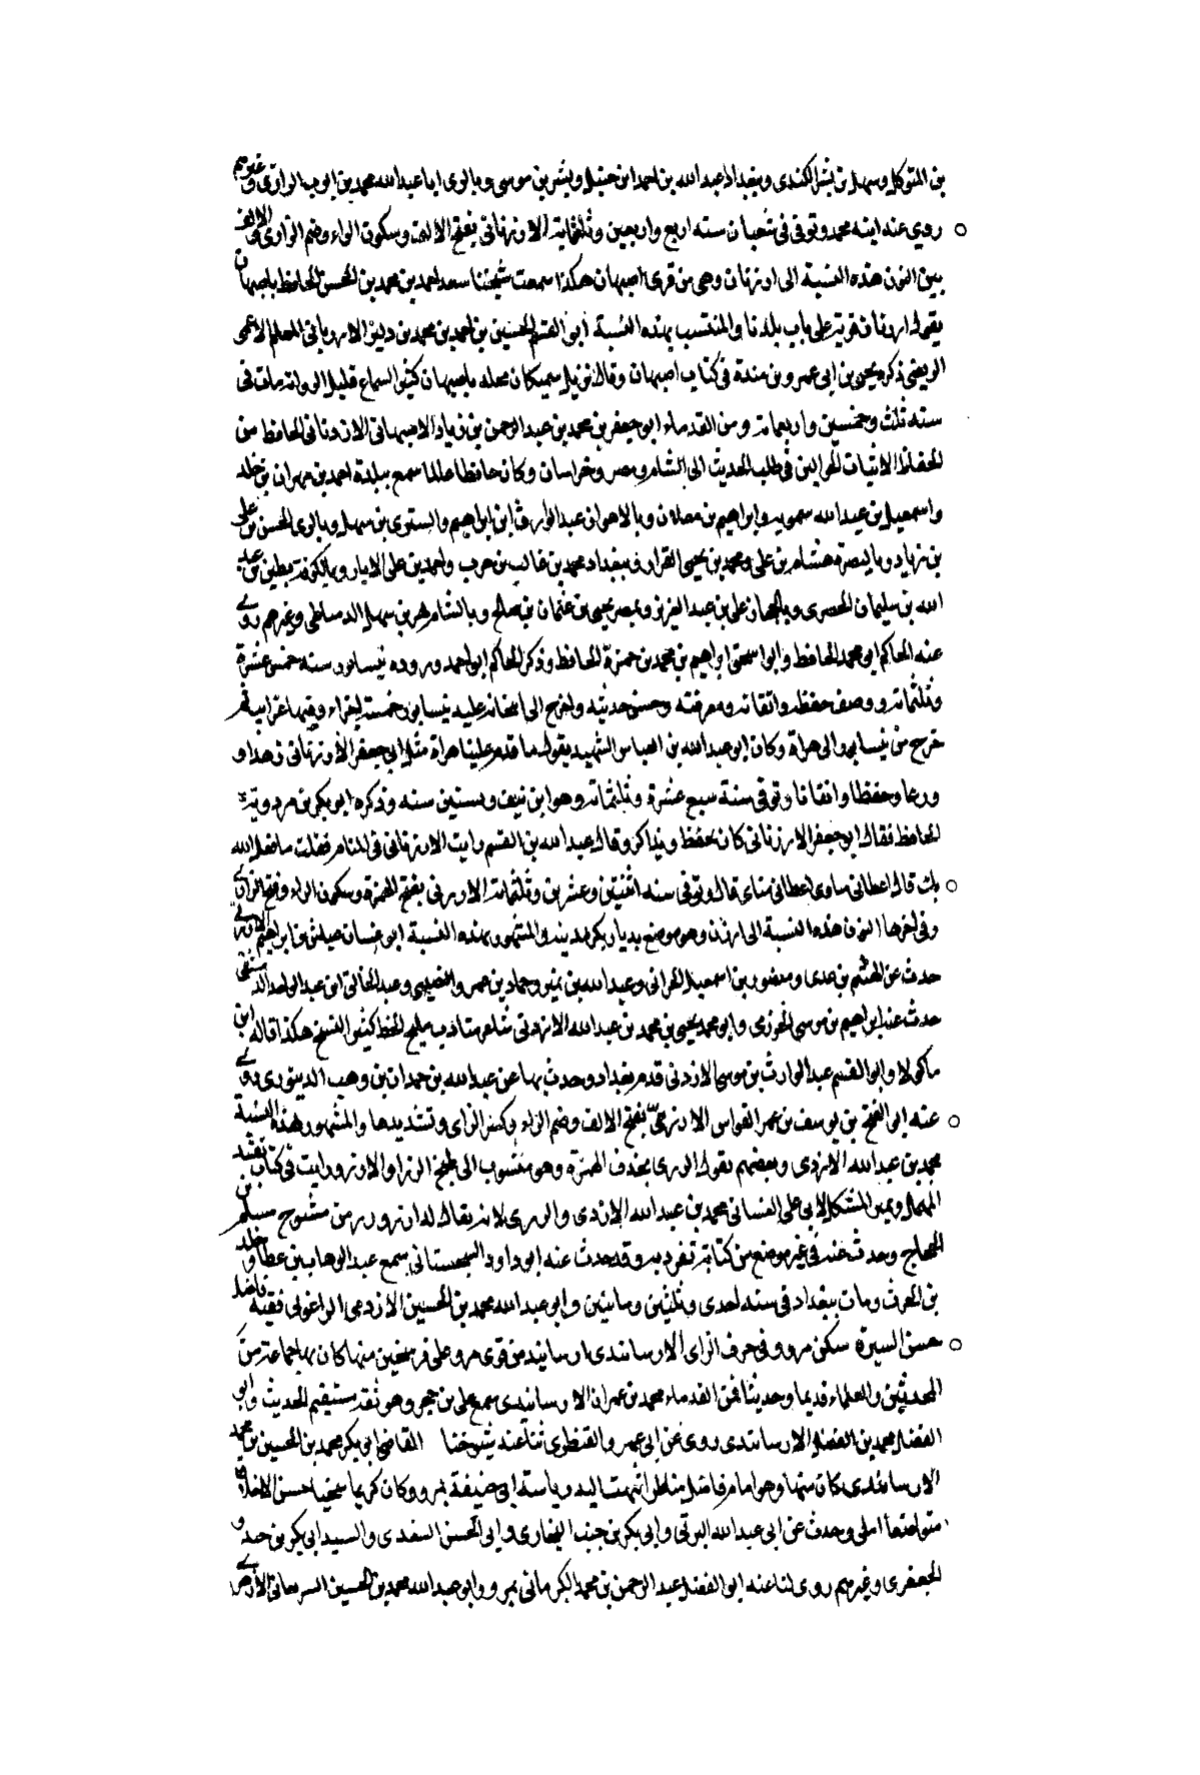 بن المتوكل وسهل بن بشر الكندى وببغداد عبد الله بن احمد ابن حنبل وبشر بن موسى وبالرى ابا عبد الله محمد بن ايوب الرازى وغيرهم
روى عنه ابنه محمد وتوفى فى شعبان سنه اربع واربعين وثلثماية الارزنانى بفتح الالف وسكون الراء وضم الزاى والالف
بين النون هذه النسبة الى ارزنان وهى من قرى اصبهان هكذا سمعت شيخنا سعد احمد بن محمد بن الحسن الحافظ باصبهان
يقول ارزنان قرية على باب بلدنا والمنتسب بهذه النسبة ابو القسم الحسين بن احمد بن محمد بن دليز الارزنانى المعلم الاعمى
ذكره يحيى بن ابى عمرو بن مندة فى كتاب اصبهان وقال نزيل سميكان محله باصبهان كثير السماع قليل الرواية مات فى
سنه ثلث وخمسين واربعماية ومن القدماء ابو جعفر بن محمد بن عبد الرحمن بن زياد الاصبهانى الارزنانى الحافظ من
الحفاظ الاثبات الجوالين فى طلب الحديث الى الشام ومصر وخراسان وكان حافظا سمع ببلدة احمد بن مهران بن خلد
واسمعيل بن عبد الله سمويه وابراهيم بن معدان وبالاهواز عبد الوارث ابن ابراهيم والستوى بن سهل وبالرى الحسن بن على
بن زياد وبالبصرة هشام بن على ومحمد بن يحيى القزاز وببغداد محمد بن غالب بن حرب واحمد بن على الابار وبالكوفة مطين بن عبد
الله بن سليمان الحضرى وبالحجاز على بن عبد العزيز وبمصر يحيى بن عثمان بن صالح وبالشام بكر بن سهل الدمياطى وغيرهم روى
عنه الحاكم ابو محمد الحافظ وابو اسحق ابراهيم بن محمد بن حمزة الحافظ وذكر الحاكم ابو احمد وروده نيسابور سنه خمس عشرة
وثلثماية ووصف حفظه واتقانه ومعرفته وحسن حديثه واخرج الى انتخابه عليه نيسابور خمسة اجزاء وفيها غرايب ثم
خرج من نيسابور الى هراة وكان ابو عبد الله بن العباس الشهيد يقول ما قدم علينا هراة مثل ابى جعفر الارزنانى زهدا و
ورعا وحفظا واتقانا وتوفى سنة سبع عشرة وثلثماية وهو ابن نيف وستين سنه وذكره ابو بكر بن مردويه
الحافظ فقال ابو جعفر الارزنانى كان يحفظ ويذاكر وقال عبد الله بن القسم رايت الارزنانى فى المنام فقلت ما فعل الله
بك قال اعطانى مناى اعطانى مناى قال وتوفى سنه اثنتين وعشرين وثلثماية الارزنى بفتح الهمزة وسكون الراء وفتح الزاى
وفى اخرها النون هذه النسبة الى ارزن وهو موضع بديار بكر مدينة والمشهور بهذه النسبة ابو غسان عياش بن ابراهيم الارزنى
حدث عن الهيثم بن عدى ومنصور بن اسمعيل الحرانى وعبد الله بن نمير وحماد بن عمرو النصيبى وعبد الخالق ابن عبد الواحد الدمشقى
حدث عنه ابراهيم بن موسى الجوزى وابو محمد يحيى بن محمد بن عبد الله الارزنى شاعر متادب مليح الخط كثير النسخ هكذا قاله ابن
ماكولا وابو القسم عبد الوارث بن موسى الارزنى قدم بغداد وحدث بها عن عبد الله بن حمدان بن وهب الدينورى روى
عنه ابو الفتح بن يوسف بن عمر القواس الارزى بفتح الالف وضم الراء وكسر الزاى وتشديدها والمشهور بهذه النسبة
محمد بن عبد الله الارزى وبعضهم يقول الرزى بحذف الهمزة وهو منسوب الى طبخ الرز او الارز ورايت فى كتاب تقييد
المهمل وتمييز المشكل لابى على الغسانى محمد بن عبد الله الارزى والرزى لانه يقال له ارز ورز من مشيوخ مسلم بن
الحجاج وحدث عنه فى غير موضع من كتابه تفرد به وقد حدث عنه ابو داود السجستانى سمع عبد الوهاب بن عطا وخلد
بن الحرث ومات ببغداد فى سنه احدى وثلثين وماىتين وابو عبد الله محمد بن الحسين الارزى الزاغولى فقيه فاضل
حسن السيرة سكن مرو وفى حرف الزاى الارسابندى ارسابند من قرى مرو على فرسخين منها كان بها جماعة من
المحدثين والعلماء قديما وحديثا فمن القدماء محمد بن عمران الارسابندى سمع على بن حجر وهو ثقه مستقيم الحديث وابو
الفضل محمد بن الفضل الارسابندى روى عن ابى عمرو القنطرى ثنا عنه شيوخنا القاضى ابى بكر محمد بن الحسين بن محمد
الارسابندى كان منها وهو امام فاضل مناظر انتهت اليه رياسة ابى حنيفة بمرو وكان كريما سخيا حسن الاخلاق
متواضعا املى وحدث عن ابى عبد الله البرقى وابى بكر بن خنب البخارى وابى الحسن السغدى والسيد ابى بكر بن حيدر و
الجعفرى وغيرهم روى لنا عنه ابو الفضل عبد الرحمن بن محمد الكرمانى بمرو وابو عبد الله محمد بن الحسين